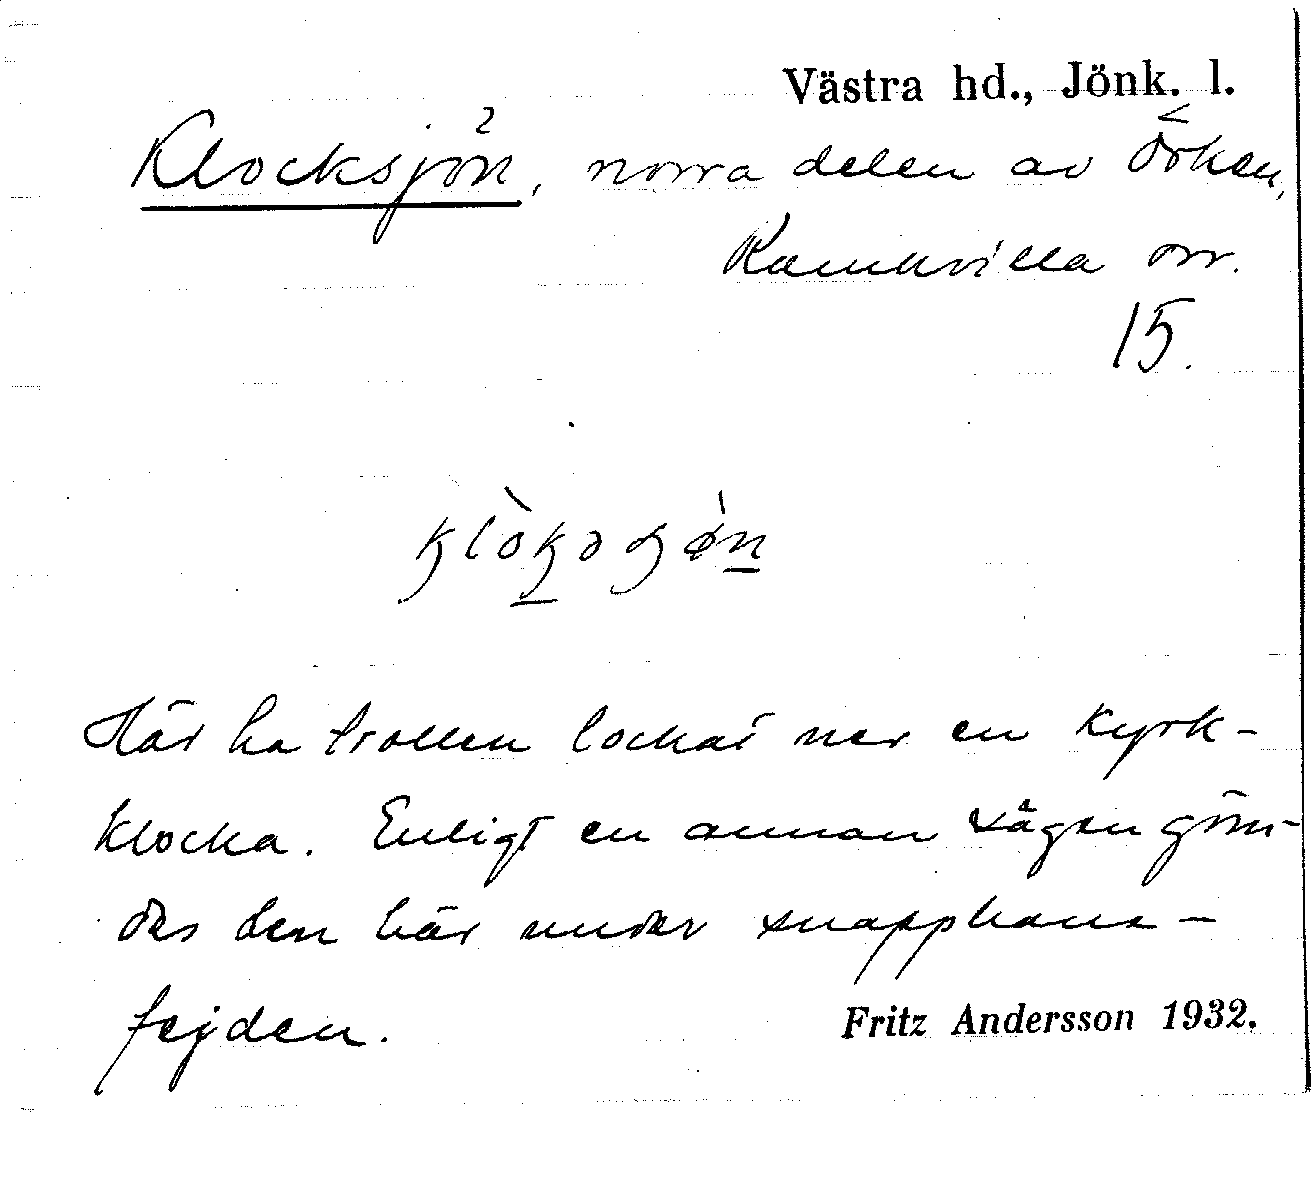 Västra hd., Jönk. l.
Klocksjön, norra delen av Örken,
Ramkvilla sn.
15.
Här ha trollen lockat ner en kyrk-
klocka. Enligt en annan sägen göm-
des den här under snapphane-
fejden.
Fritz Andersson 1932.